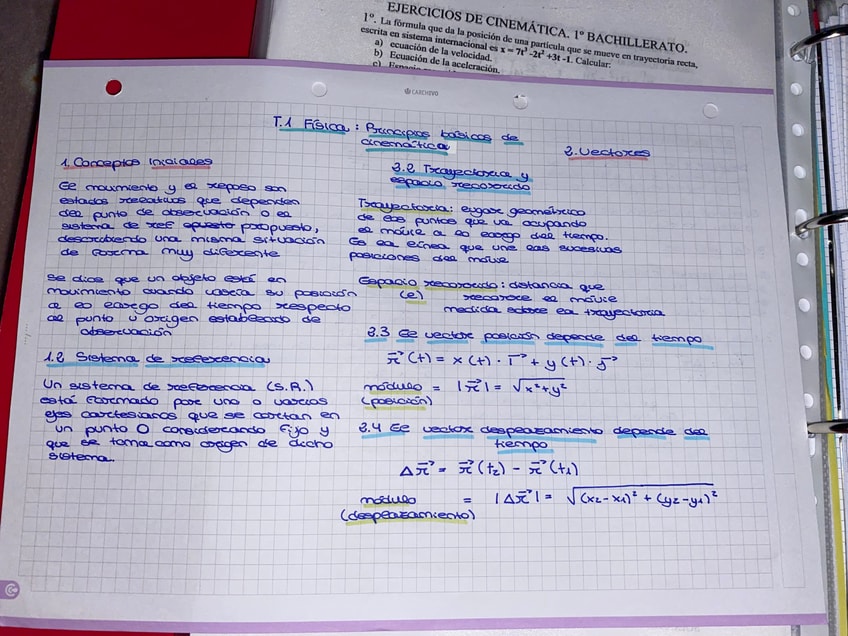 EJERCICIOS DE CINEMÁTICA. 1º BACHILLERATO.
1º. La fórmula que da la posición de una partícula que se mueve en trayectoria recta,
escrita en sistema internacional es x = 7t³ -2t² +3t -1. Calcular:
a) ecuación de la velocidad.
b) Ecuación de la aceleración.
c) Espacio
CARCHIVO
T.1 Física: Principios básicos de
cinemática
1. Conceptos Iniciales
El movimiento y el reposo son
estados relativos que dependen
del punto de observación o el
sistema de ref propuesto,
describiendo una misma situación
de forma muy diferente
Se dice que un objeto está en
movimiento cuando varía su posición
a lo largo del tiempo respecto
al punto u origen establecido de
observación
1.2 Sistema de referencia
Un sistema de referencia (S.R.)
está formado por uno o varios
ejes cartesianos que se cortan en
un punto O considerando fijo y
que se toma como origen de dicho
sistema.
2. Vectores
3.2 Trayectoria y
espacio recorrido
Trayectoria: lugar geométrico
de los puntos que va ocupando
el móvil a lo largo del tiempo.
Es la línea que une las sucesivas
posiciones del móvil
Espacio recorrido: distancia que
(e) recorre el móvil
medida sobre la trayectoria
3.3 El vector posición depende del tiempo
r⃗ (t) = x (t) · i⃗ + y (t) · j⃗
módulo = |r⃗| = √x²+y²
(posición)
3.4 El vector desplazamiento depende del
tiempo
Δr⃗ = r⃗ (t₂) - r⃗ (t₁)
módulo = |Δr⃗| = √(x₂-x₁)² + (y₂-y₁)²
(desplazamiento)